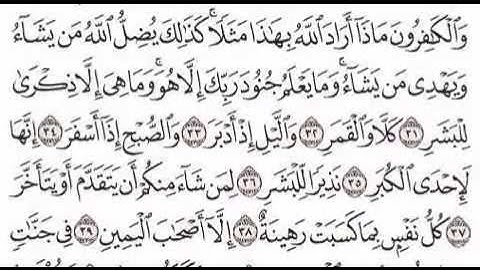 وَٱلْكَٰفِرُونَ مَاذَآ أَرَادَ ٱللَّهُ بِهَٰذَا مَثَلًا ۚ كَذَٰلِكَ يُضِلُّ ٱللَّهُ مَن يَشَآءُ
وَيَهْدِى مَن يَشَآءُ ۚ وَمَا يَعْلَمُ جُنُودَ رَبِّكَ إِلَّا هُوَ ۚ وَمَا هِىَ إِلَّا ذِكْرَىٰ
لِلْبَشَرِ ٣١ كَلَّا وَٱلْقَمَرِ ٣٢ وَٱلَّيْلِ إِذْ أَدْبَرَ ٣٣ وَٱلصُّبْحِ إِذَآ أَسْفَرَ ٣٤ إِنَّهَا
لَإِحْدَى ٱلْكُبَرِ ٣٥ نَذِيرًا لِّلْبَشَرِ ٣٦ لِمَن شَآءَ مِنكُمْ أَن يَتَقَدَّمَ أَوْ يَتَأَخَّرَ
٣٧ كُلُّ نَفْسٍۭ بِمَا كَسَبَتْ رَهِينَةٌ ٣٨ إِلَّآ أَصْحَٰبَ ٱلْيَمِينِ ٣٩ فِى جَنَّٰتٍ